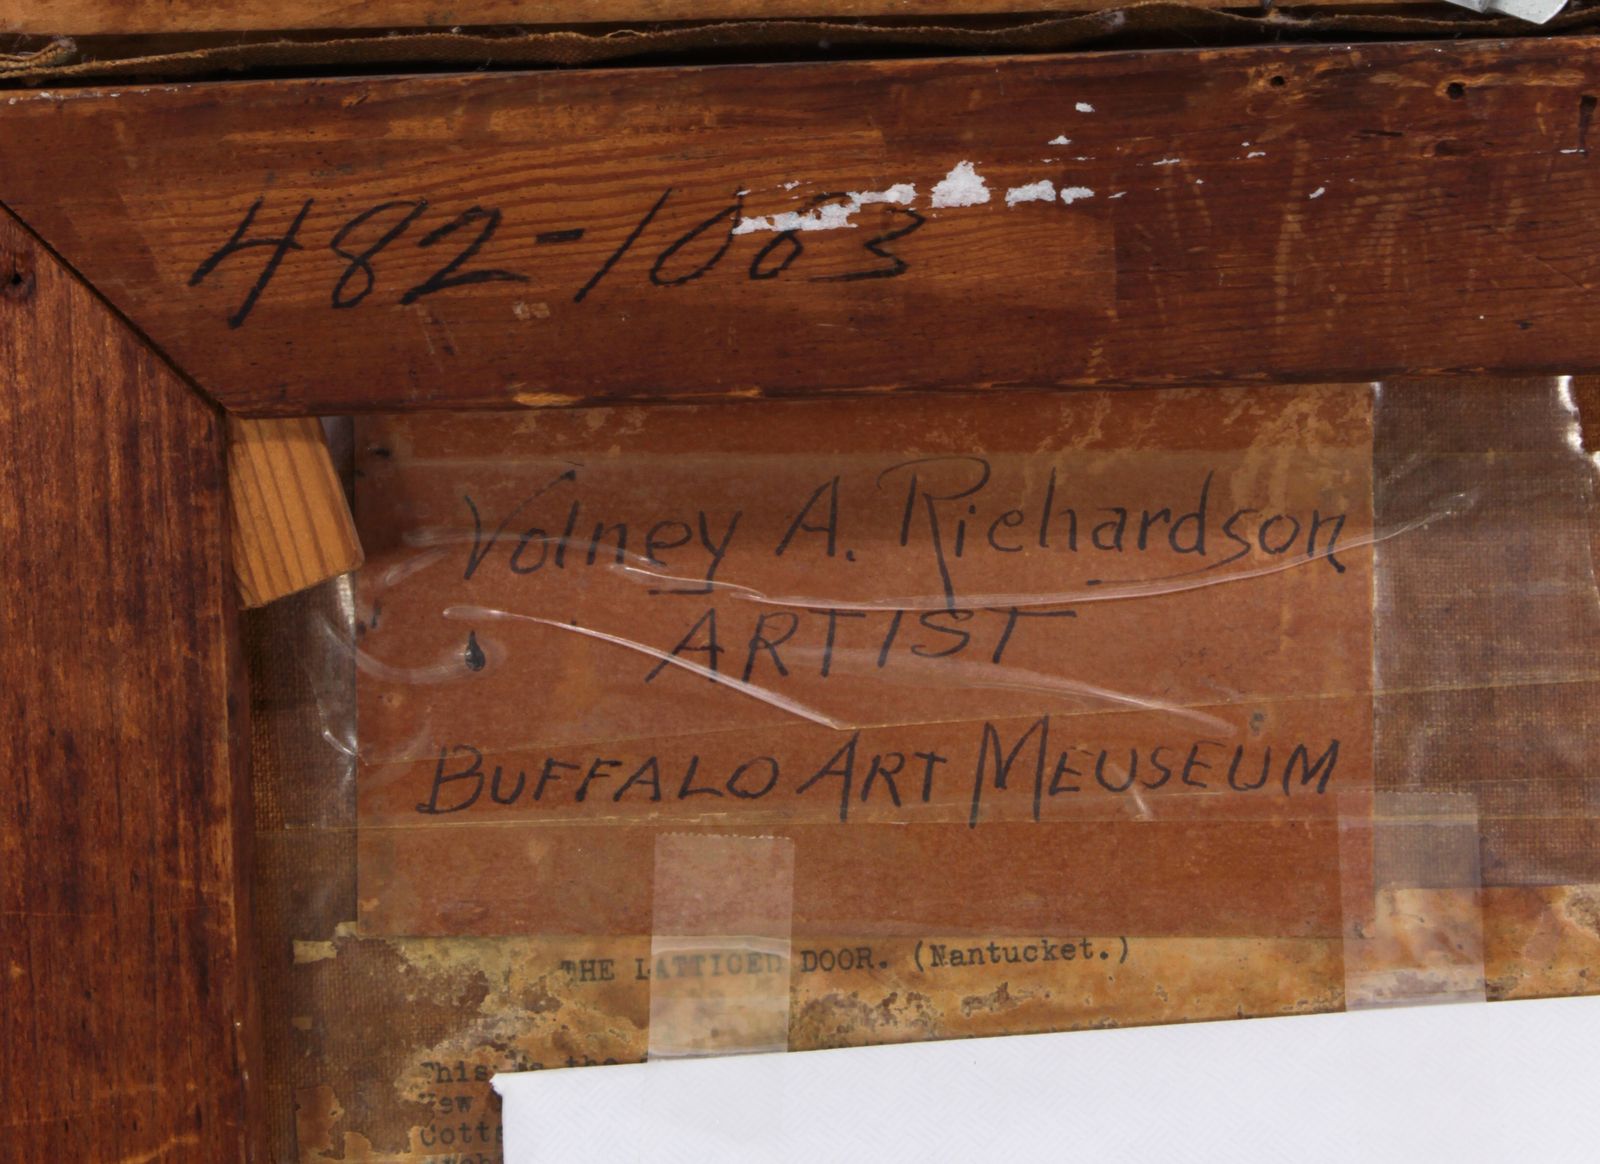 482-1083
Volney A. Richardson
ARTIST
BUFFALO ART MEUSEUM
THE LATTICED DOOR. (Nantucket.)
This is the
New